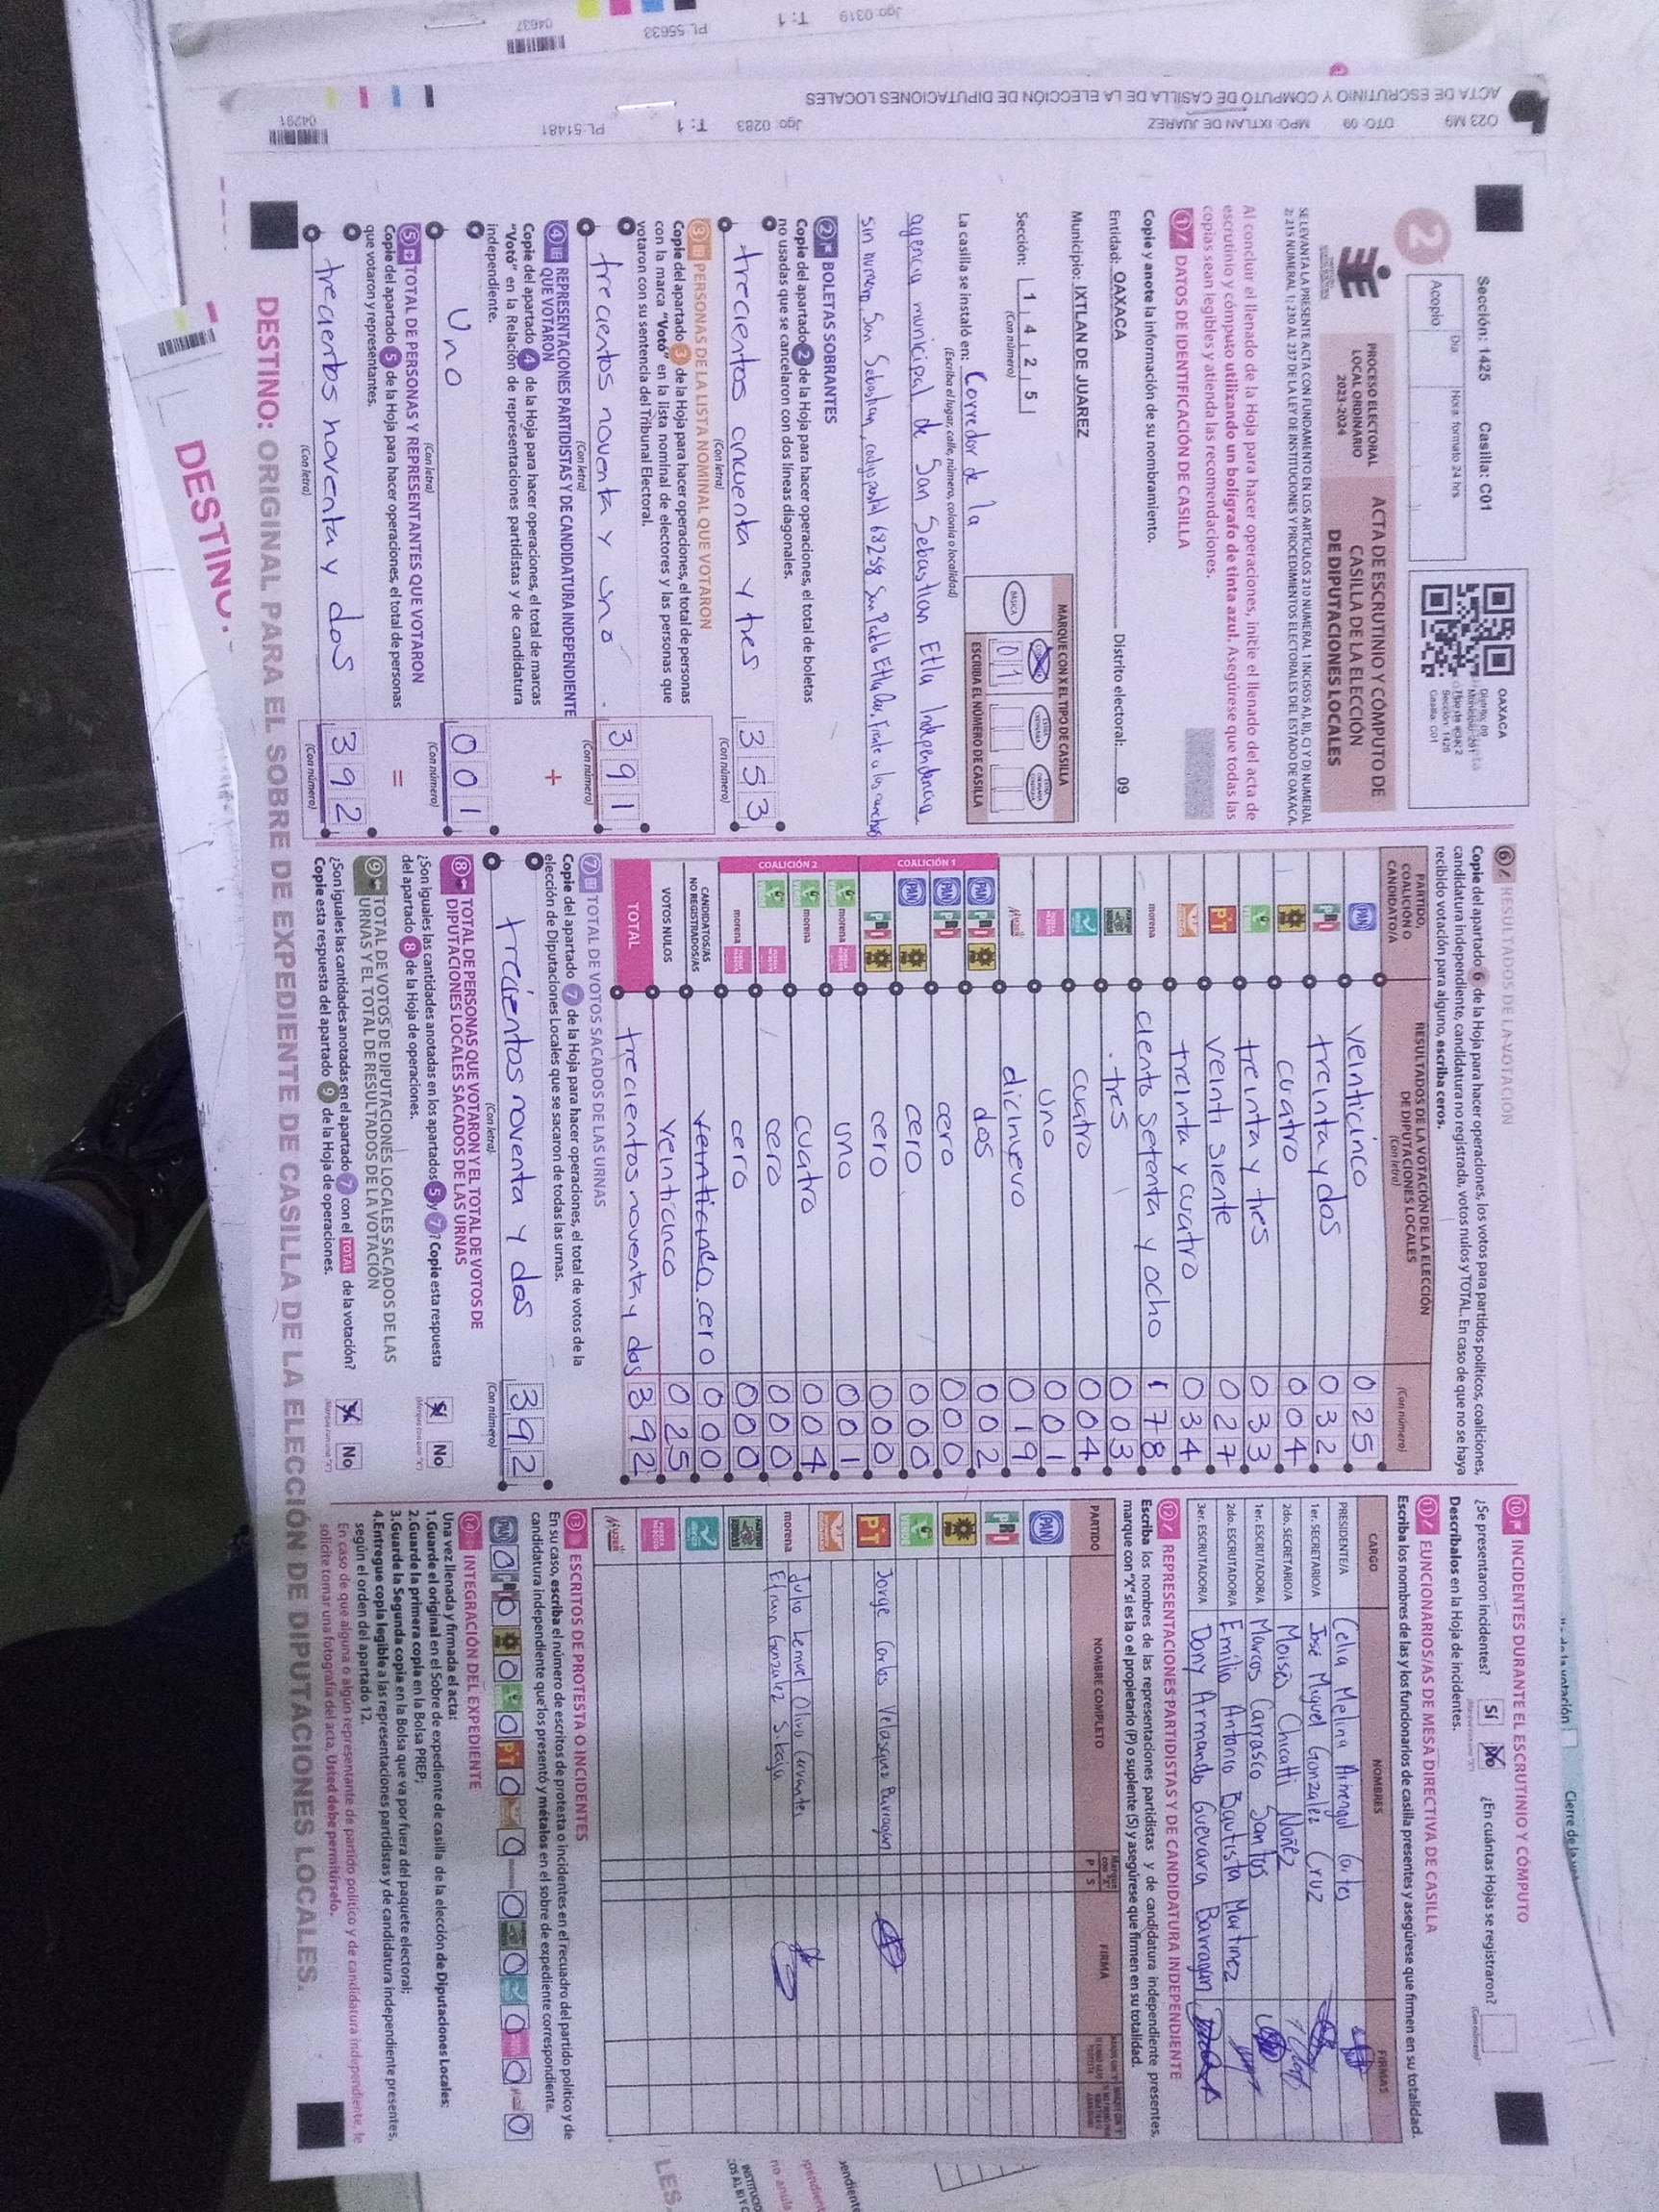 ACTA DE ESCRUTINIO Y CÓMPUTO DE CASILLA DE LA ELECCIÓN DE DIPUTACIONES LOCALES
O23 M9 DTO: 09 MPO: IXTLAN DE JUAREZ Jgo: 0283 T: 1 PL:51481 04291
Jgo: 0319 T: 1 PL 55633 04637
Sección: 1425 Casilla: C01
2
Acopio
Día
Hora: formato 24 hrs
OAXACA
Distrito: 09
Sección: 1425
Casilla: C01
PROCESO ELECTORAL
LOCAL ORDINARIO
2023-2024
ACTA DE ESCRUTINIO Y CÓMPUTO DE
CASILLA DE LA ELECCIÓN
DE DIPUTACIONES LOCALES
SE LEVANTA LA PRESENTE ACTA CON FUNDAMENTO EN LOS ARTÍCULOS 210 NUMERAL 1 INCISOS A), B), C) Y D) NUMERAL
2; 215 NUMERAL 1; 230 AL 237 DE LA LEY DE INSTITUCIONES Y PROCEDIMIENTOS ELECTORALES DEL ESTADO DE OAXACA.
Al concluir el llenado de la Hoja para hacer operaciones, inicie el llenado del acta de
escrutinio y cómputo utilizando un bolígrafo de tinta azul. Asegúrese que todas las
copias sean legibles y atienda las recomendaciones.
1 DATOS DE IDENTIFICACIÓN DE CASILLA
Copie y anote la información de su nombramiento.
Entidad: OAXACA Distrito electoral: 09
Municipio: IXTLAN DE JUAREZ
Sección: 1 4 2 5
(Con número)
MARQUE CON X EL TIPO DE CASILLA
BÁSICA
ESCRIBA EL NÚMERO DE CASILLA
01
La casilla se instaló en: Corredor de la
(Escriba el lugar, calle, número, colonia o localidad)
agencia municipal de San Sebastian Etla Independencia
sin numero San Sebastian, codigo postal 68258 San Pablo Etla Oax. Frente a las canchas
2 BOLETAS SOBRANTES
Copie del apartado 2 de la Hoja para hacer operaciones, el total de boletas
no usadas que se cancelaron con dos líneas diagonales.
trecientos cincuenta y tres 353
(Con letra) (Con número)
3 PERSONAS DE LA LISTA NOMINAL QUE VOTARON
Copie del apartado 3 de la Hoja para hacer operaciones, el total de personas
con la marca "Votó" en la lista nominal de electores y las personas que
votaron con su sentencia del Tribunal Electoral.
trecientos noventa y uno 391
(Con letra) (Con número)
4 REPRESENTACIONES PARTIDISTAS Y DE CANDIDATURA INDEPENDIENTE
QUE VOTARON
Copie del apartado 4 de la Hoja para hacer operaciones, el total de marcas
"Votó" en la Relación de representaciones partidistas y de candidatura
independiente.
+
Uno 001
(Con letra) (Con número)
5 TOTAL DE PERSONAS Y REPRESENTANTES QUE VOTARON
Copie del apartado 5 de la Hoja para hacer operaciones, el total de personas
que votaron y representantes.
=
trecientos noventa y dos 392
(Con letra) (Con número)
6 RESULTADOS DE LA VOTACIÓN
Copie del apartado 6 de la Hoja para hacer operaciones, los votos para partidos políticos, coaliciones,
candidatura independiente, candidatura no registrada, votos nulos y TOTAL. En caso de que no se haya
recibido votación para alguno, escriba ceros.
PARTIDO, COALICIÓN O CANDIDATO/A
RESULTADOS DE LA VOTACIÓN DE LA ELECCIÓN DE DIPUTACIONES LOCALES
(Con letra) (Con número)
PAN veinticinco 025
PRI treinta y dos 032
cuatro 004
VERDE treinta y tres 033
PT veinti siente 027
treinta y cuatro 034
morena ciento setenta y ocho 178
tres 003
cuatro 004
uno 001
Mujer dicinuevo 019
COALICIÓN 1
PAN PRI dos 002
PAN PRI cero 000
PAN cero 000
PRI cero 000
COALICIÓN 2
VERDE morena uno 001
VERDE morena cuatro 004
VERDE cero 000
morena cero 000
CANDIDATOS/AS NO REGISTRADOS/AS veinticinco cero 000
VOTOS NULOS veinticinco 025
TOTAL trecientos noventa y dos 392
7 TOTAL DE VOTOS SACADOS DE LAS URNAS
Copie del apartado 7 de la Hoja para hacer operaciones, el total de votos de la
elección de Diputaciones Locales que se sacaron de todas las urnas.
trecientos noventa y dos 392
(Con letra) (Con número)
8 TOTAL DE PERSONAS QUE VOTARON Y EL TOTAL DE VOTOS DE
DIPUTACIONES LOCALES SACADOS DE LAS URNAS
¿Son iguales las cantidades anotadas en los apartados 5 y 7? Copie esta respuesta
del apartado 8 de la Hoja de operaciones.
Sí No
9 TOTAL DE VOTOS DE DIPUTACIONES LOCALES SACADOS DE LAS
URNAS Y EL TOTAL DE RESULTADOS DE LA VOTACIÓN
¿Son iguales las cantidades anotadas en el apartado 7 con el TOTAL de la votación?
Copie esta respuesta del apartado 9 de la Hoja de operaciones.
Sí No
10 INCIDENTES DURANTE EL ESCRUTINIO Y CÓMPUTO
¿Se presentaron incidentes? Sí No ¿En cuántas Hojas se registraron?
Descríbalos en la Hoja de incidentes.
11 FUNCIONARIOS/AS DE MESA DIRECTIVA DE CASILLA
Escriba los nombres de las y los funcionarios de casilla presentes y asegúrese que firmen en su totalidad.
CARGO NOMBRES FIRMAS
PRESIDENTE/A Celia Melina Armengol Cortes
1er. SECRETARIO/A José Miguel Gonzalez Cruz
2do. SECRETARIO/A Moisés Chicatti Nuñez
1er. ESCRUTADOR/A Marcos Carrasco Santos
2do. ESCRUTADOR/A Emilio Antonio Bautista Martinez
3er. ESCRUTADOR/A Dony Armando Guevara Barragan
12 REPRESENTACIONES PARTIDISTAS Y DE CANDIDATURA INDEPENDIENTE
Escriba los nombres de las representaciones partidistas y de candidatura independiente presentes,
marque con "X" si es la o el propietario (P) o suplente (S) y asegúrese que firmen en su totalidad.
PARTIDO NOMBRE COMPLETO P S FIRMA
PAN
PRI
VERDE
PT Jorge Carlos Velasquez Barragan
morena Julio Lemuel Olivo Cervantes
Efrain Gonzalez Sibaja
Mujer
13 ESCRITOS DE PROTESTA O INCIDENTES
En su caso, escriba el número de escritos de protesta o incidentes en el recuadro del partido político y de
candidatura independiente que los presentó y métalos en el sobre de expediente correspondiente.
PAN 0 PRI 0 0 VERDE 0 PT 0 0 0 0 0 0 0
14 INTEGRACIÓN DEL EXPEDIENTE
Una vez llenada y firmada el acta:
1.Guarde el original en el Sobre de expediente de casilla de la elección de Diputaciones Locales;
2.Guarde la primera copia en la Bolsa PREP;
3.Guarde la Segunda copia en la Bolsa que va por fuera del paquete electoral;
4.Entregue copia legible a las representaciones partidistas y de candidatura independiente presentes,
según el orden del apartado 12.
En caso de que alguna o algún representante de partido político y de candidatura independiente, le
solicite tomar una fotografía del acta, Usted debe permitírselo.
DESTINO: ORIGINAL PARA EL SOBRE DE EXPEDIENTE DE CASILLA DE LA ELECCIÓN DE DIPUTACIONES LOCALES.
DESTINO: